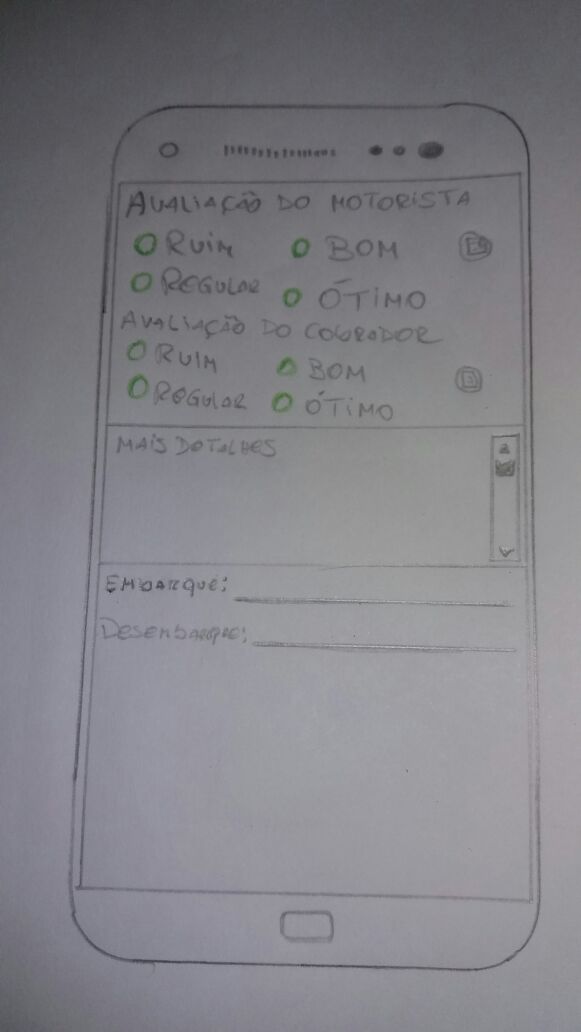 AVALIAÇÃO DO MOTORISTA
RUIM BOM
REGULAR ÓTIMO
AVALIAÇÃO DO COBRADOR
RUIM BOM
REGULAR ÓTIMO
MAIS DETALHES
EMBARQUE:
DESEMBARQUE: